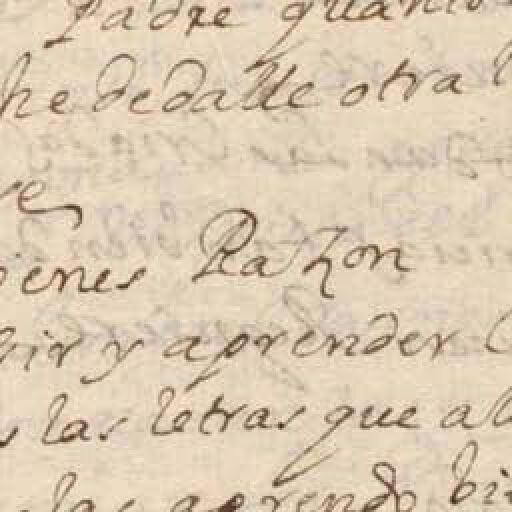 Padre quanto
he de dalle otra l
re
bienes Razon
bir y aprender
s las letras que al
las aprendo bi